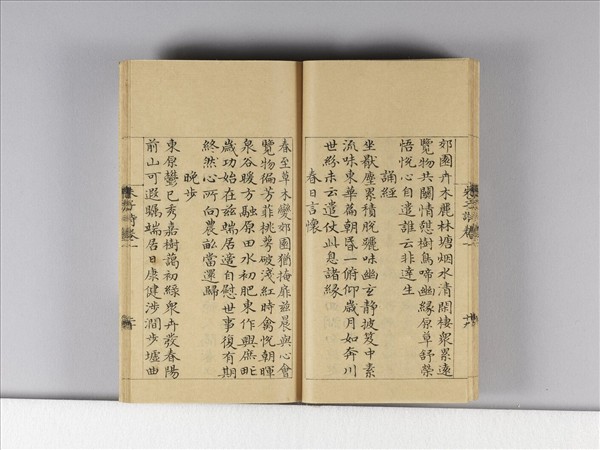 郊園卉木麗林塘烟水清閒棲衆累遠
覽物共關情憩樹鳥啼幽緣原草舒榮
悟悅心自遣誰云非達生
誦經
坐猒塵累積脫躧味幽玄静披笈中素
流味東華篇朝昏一俯仰歲月如奔川
世紛未云遣仗此息諸緣
春日言懷
春至草木變郊園猶掩扉兹晨與心會
覽物徧芳菲桃萼破淺紅時禽悅朝暉
泉谷暖方融原田水初肥東作興庶甿
歲功始在兹端居適自慰世事復有期
終然心所向農畝當還歸
晚步
東原鬱已秀嘉樹藹初綠衆卉發春陽
前山可遐矚端居日康健涉澗步墟曲